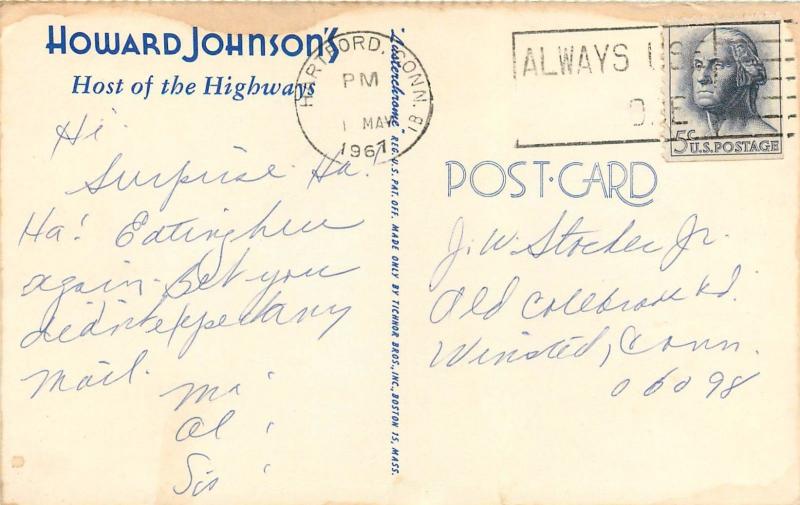 HOWARD JOHNSON'S
Host of the Highways
HARTFORD, CONN.
PM
1 MAY
1967
18
ALWAYS US
5¢ U.S. POSTAGE
"Lusterchrome" REG. U.S. PAT. OFF. MADE ONLY BY TICHNOR BROS., INC., BOSTON 15, MASS.
POST-CARD
Hi
Surprise Ha!
Ha! Eating here
again. Bet you
didn't expect any
mail.
Ma
Al
Sis
J. W. Jr.
Old Colebrook Rd.
Winsted, Conn.
06098